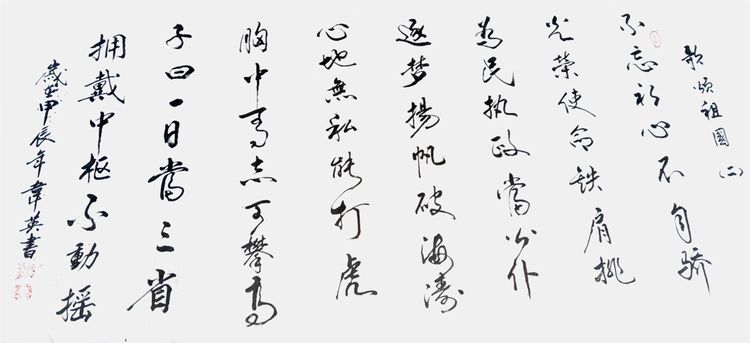 歌颂祖国(二)
不忘初心不自骄
光荣使命铁肩挑
为民执政当公仆
逐梦揚帆破海濤
心地無私能打虎
胸中有志可攀高
子曰一日當三省
拥戴中枢不動摇
歲在甲辰年韋英書